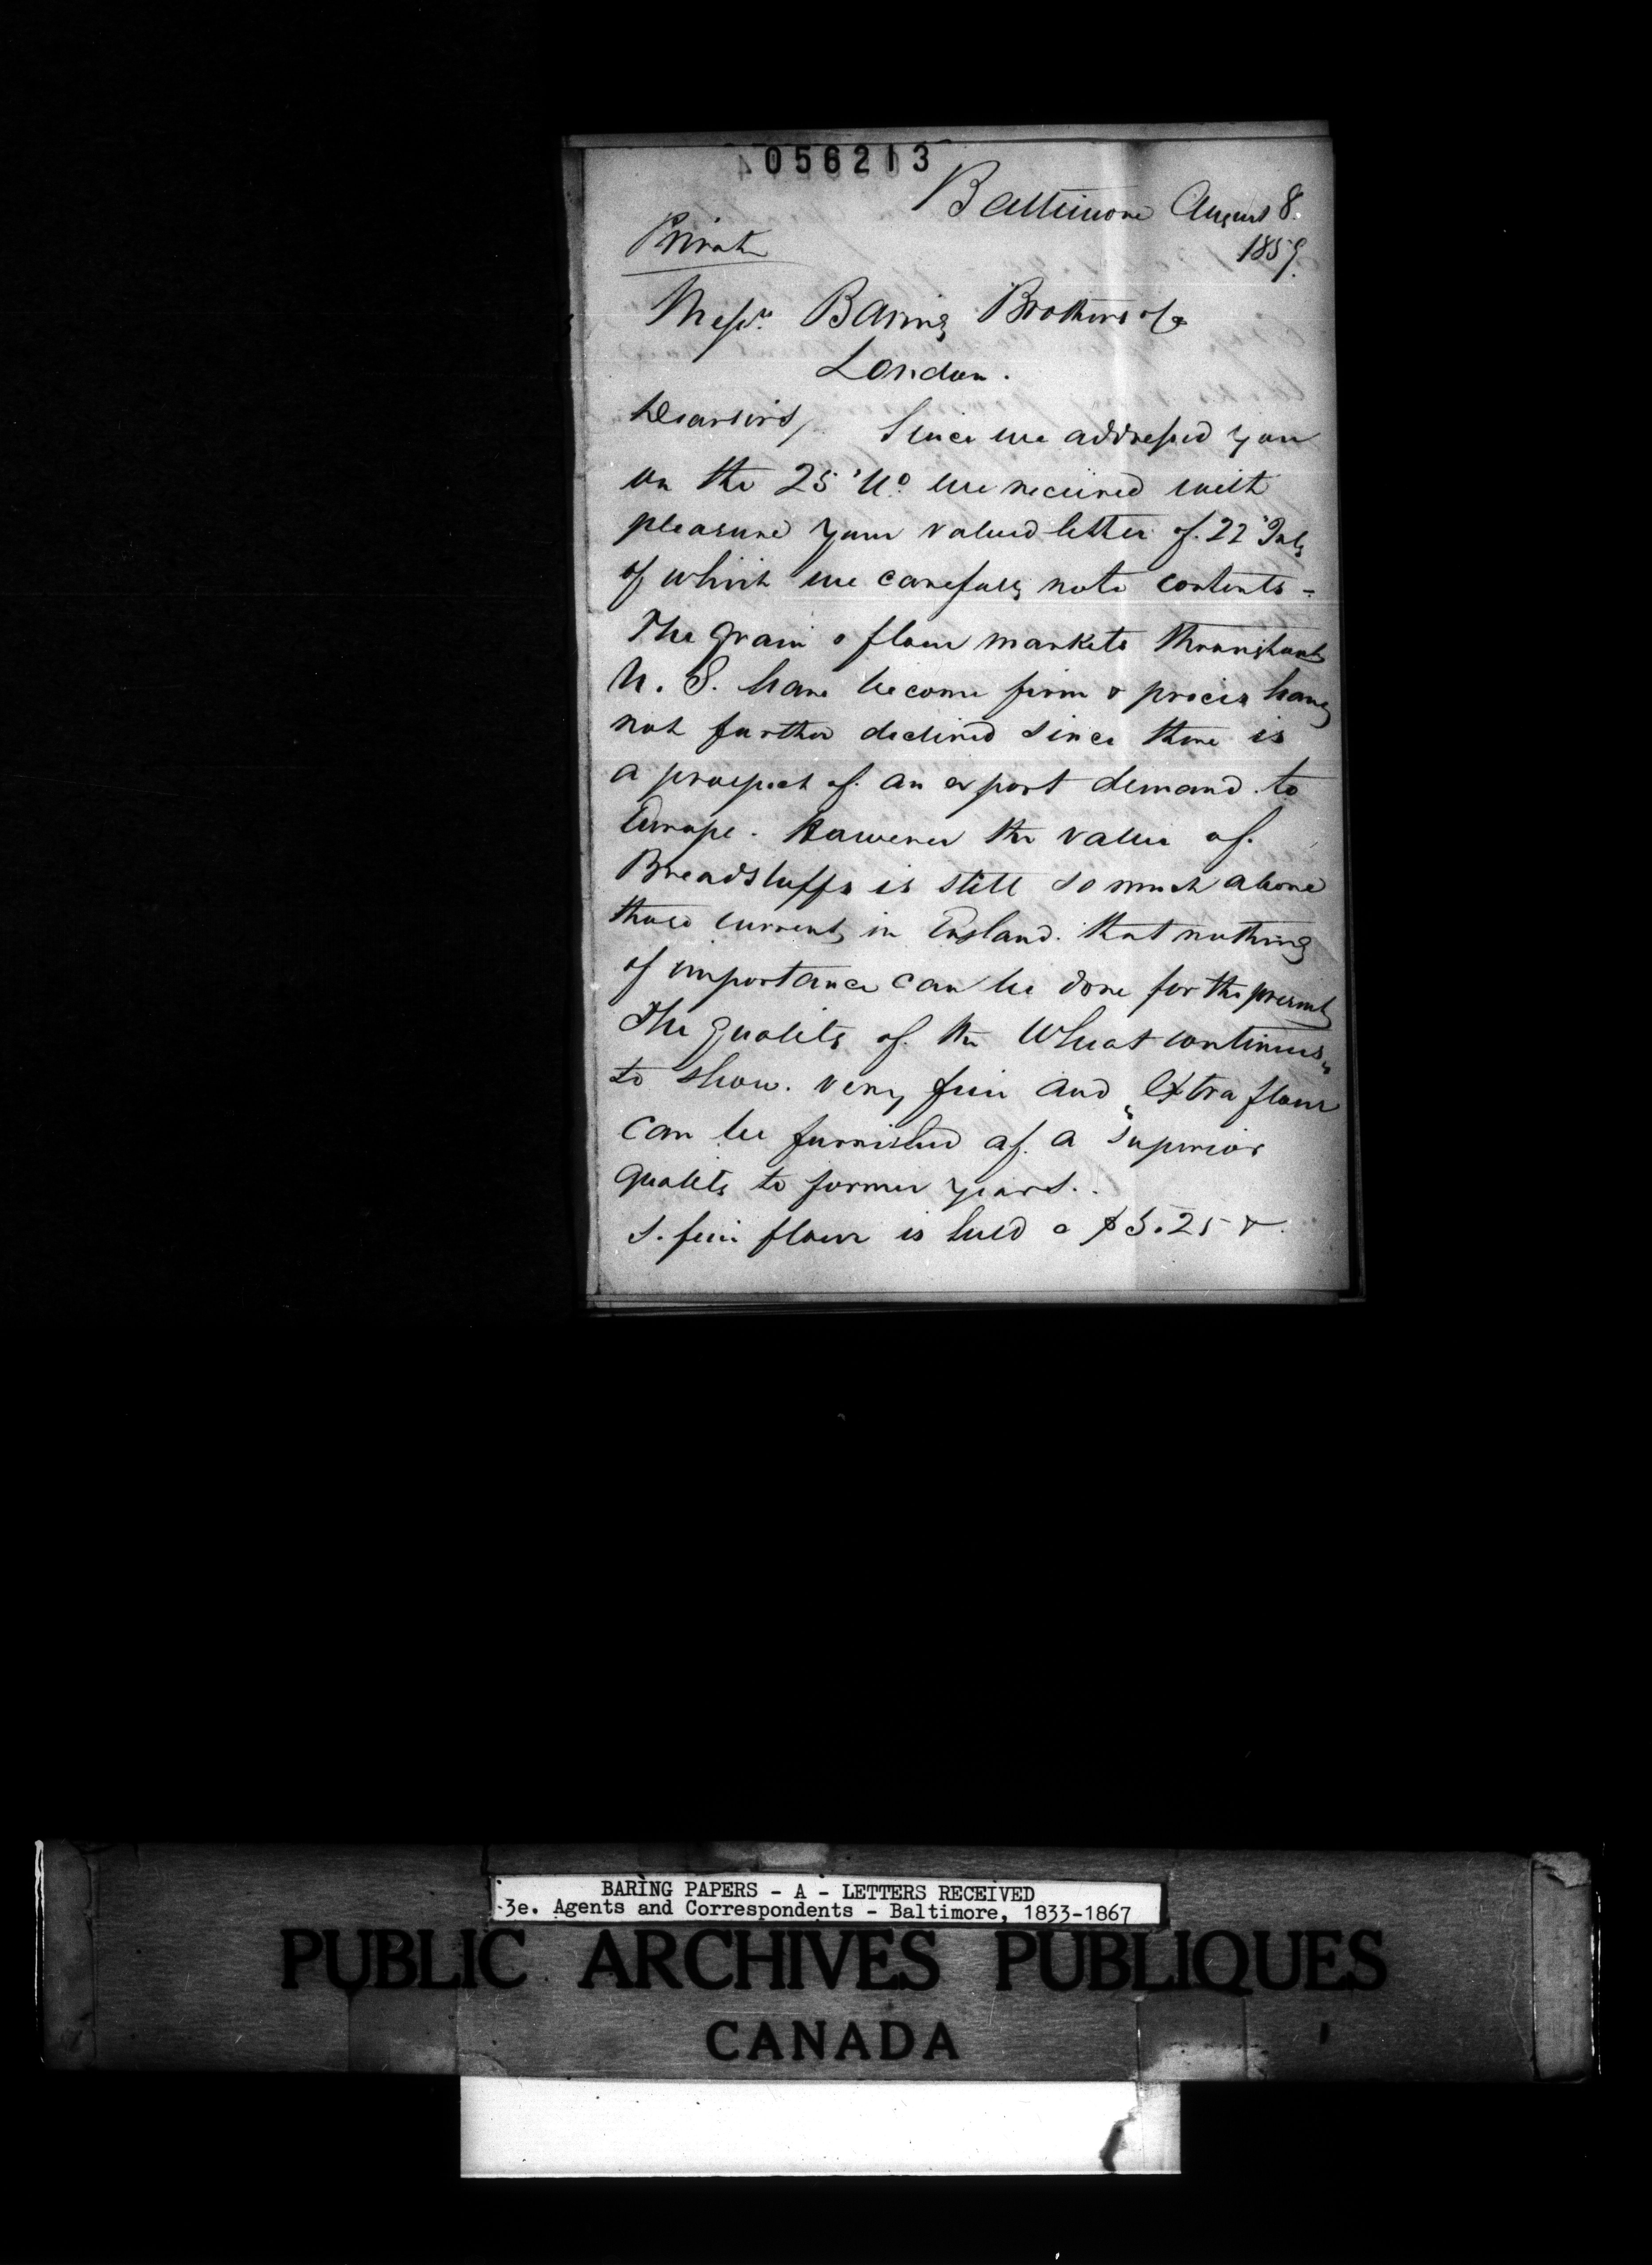 056213
Baltimore August 8.
1859.
Private
Messrs. Baring Brothers & Co
London.
Dear Sirs, Since we addressed you
on the 25' Uo. we received with
pleasure your valued letter of 22' July
of which we carefully note contents -
The Grain & flour markets throughout
U. S. have become firm & prices have
not further declined since there is
a prospect of an export demand to
Europe. However the value of
Breadstuffs is still so much above
those current in England. that nothing
of importance can be done for the present
The quality of the Wheat continues
to show very fine and Extra flour
can be furnished of a superior
quality to former years.
S. fine flour is held a $5.25 &
BARING PAPERS - A - LETTERS RECEIVED
3e. Agents and Correspondents - Baltimore, 1833-1867
PUBLIC ARCHIVES PUBLIQUES
CANADA